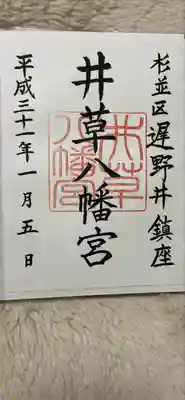 杉並区遅野井鎮座
井草八幡宮
井草八幡宮
平成三十一年一月五日